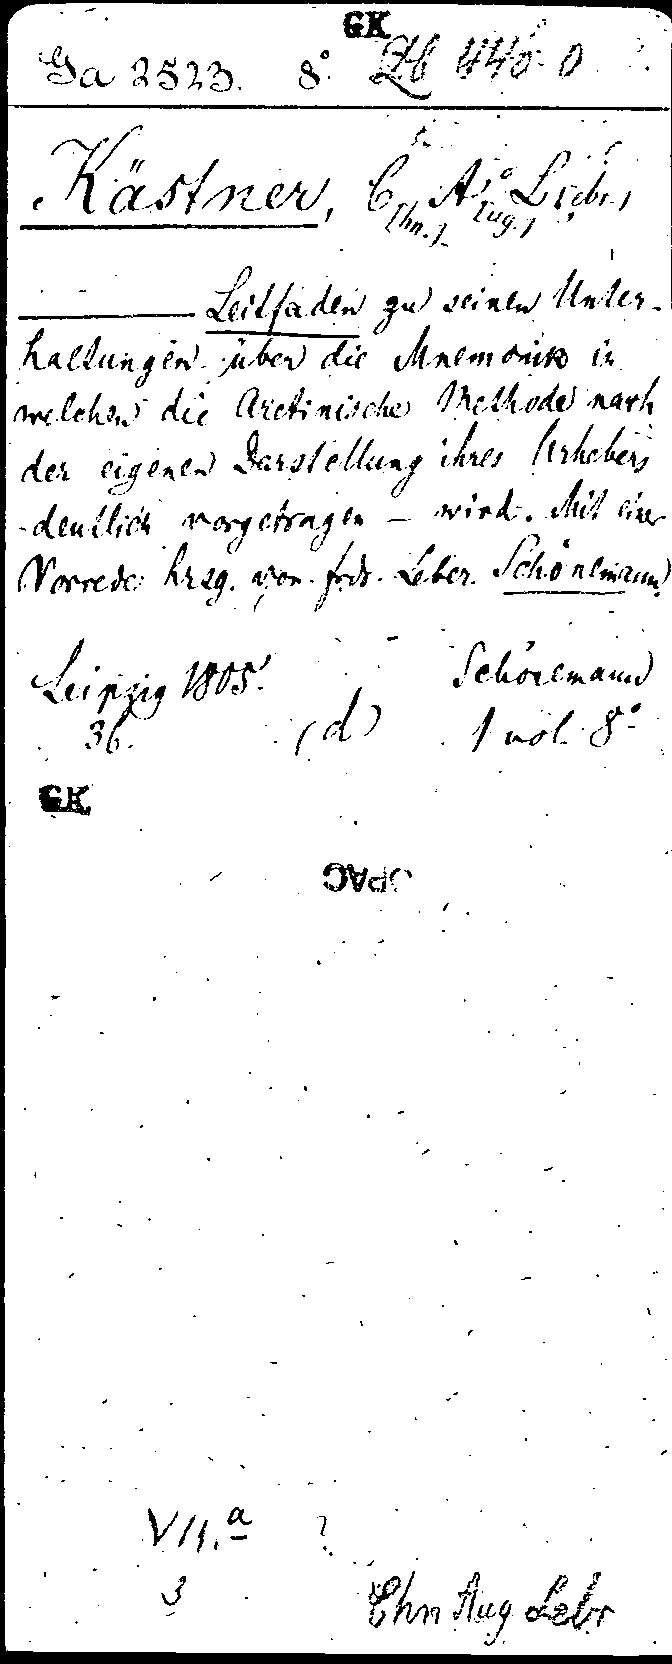 GK
Ga 2523. 8°.
Kästner, C[hn.] A[ug.] Lebr.
Leitfaden zu seinen Unter-
haltungen über die Mnemonik in
welchen die Aretinische Methode nach
der eigenen Darstellung ihres Urhebers
deutlich vorgetragen – wird. Mit einer
Vorrede hrsg. von Frdr. Leber. Schönemann.
Leipzig 1805. Schönemann
36. (d) 1 vol. 8°
GK
OPAC
VII.a
3 Chn Aug Lebr